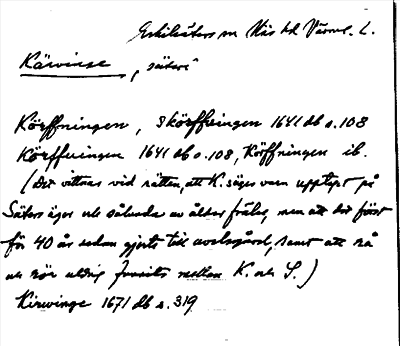 Eskilsäters sn Näs hd Värml. L.
Kärvinge, "säteri"
Körffningen, Skörffningen 1641 db s. 108
Körffveingen 1641 db s. 108, Körffningen ib.
(Det vittnas vid rätten, att K. säges vara upptaget på
Säters ägor och således av ålder frälse, men att det först
för 40 år sedan gjorts till avelsgård, samt att rå
och rör aldrig funnits mellan K. och S.)
Kirwinge 1671 db s. 319